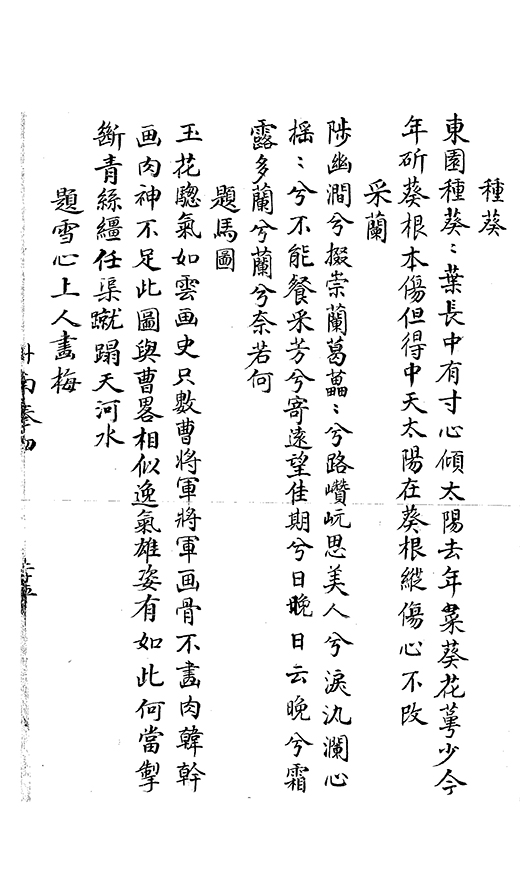 種葵
東園種葵〻葉長中有寸心傾太陽去年葉葵花萼少今
年斫葵根本傷但得中天太陽在葵根縱傷心不改
采蘭
陟幽澗兮掇崇蘭葛藟〻兮路巑岏思美人兮淚汍瀾心
搖〻兮不能餐采芳兮寄遠望佳期兮日晚日云晚兮霜
露多蘭兮蘭兮奈若何
題馬圖
玉花驄氣如雲画史只數曹將軍將軍画骨不畫肉韓幹
画肉神不足此圖與曹畧相似逸氣雄姿有如此何當掣
斷青絲繮任渠蹴蹋天河水
題雪心上人畫梅